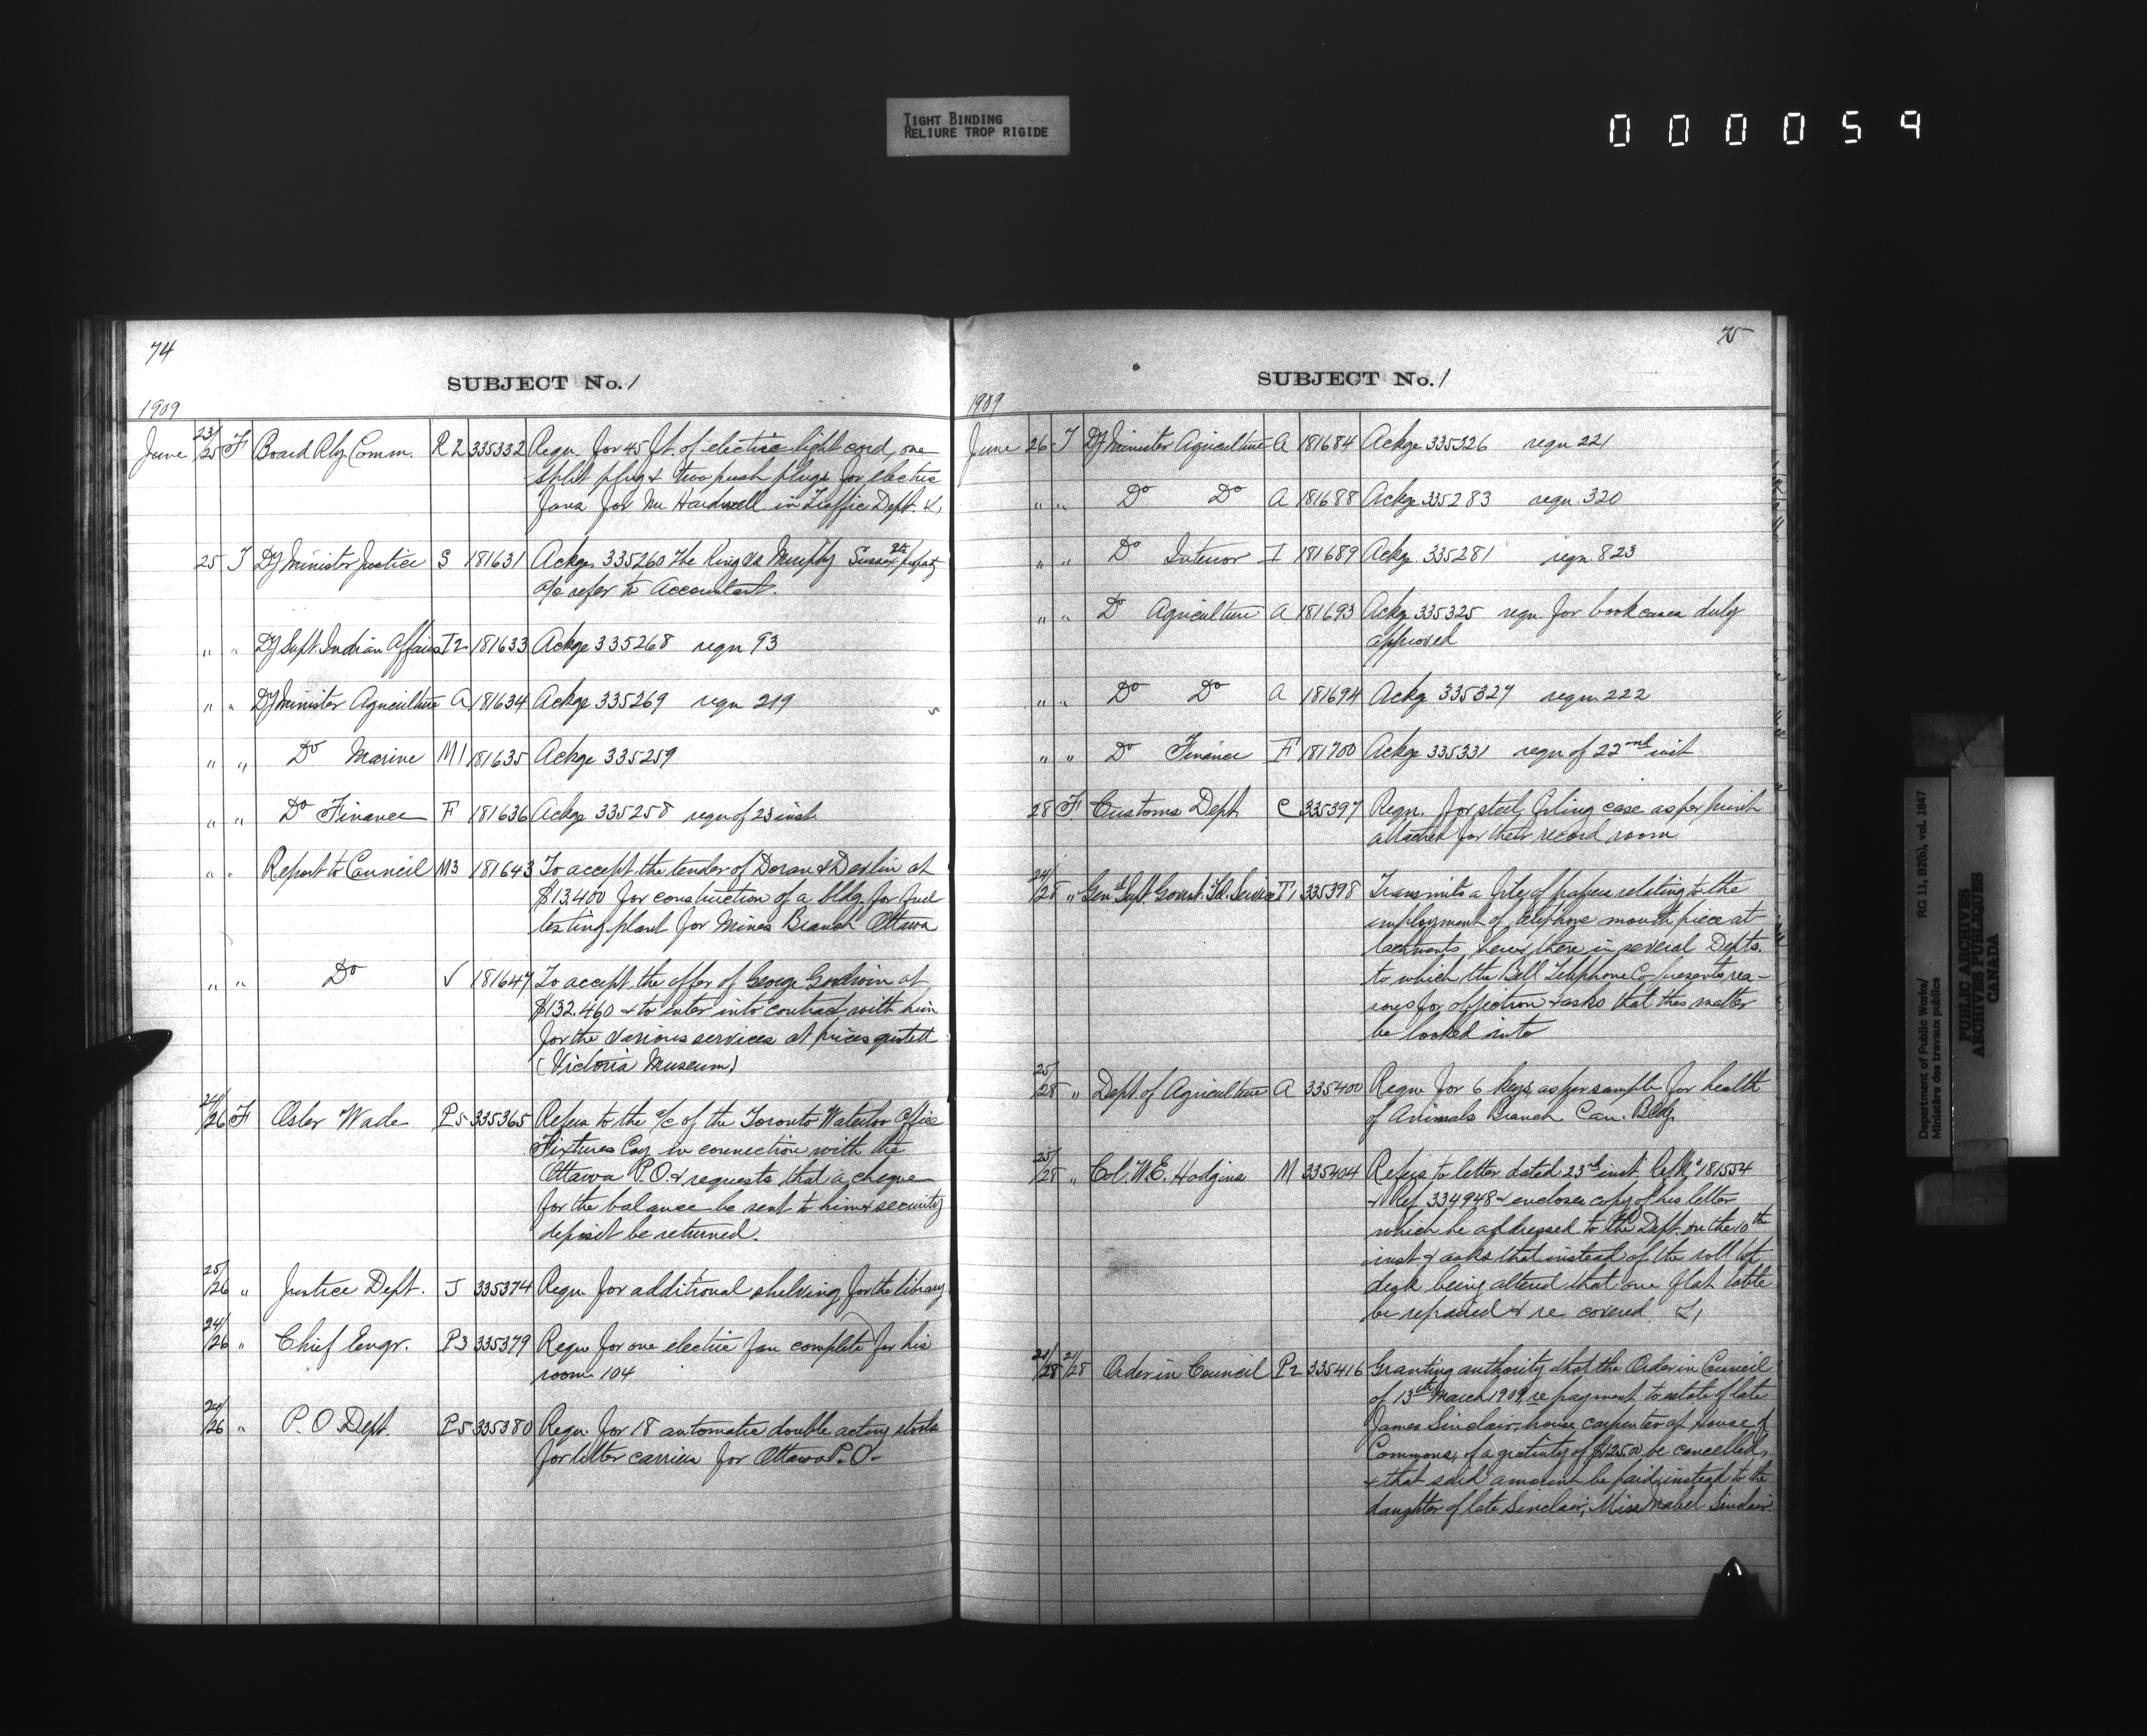 TIGHT BINDING
RELIURE TROP RIGIDE
000059
74
SUBJECT No. 1
1909
June 23/25 F Board Rly Comm. R2 335332 Requ. for 45 ft. of electric light cord, one
split plug & two push plugs for electric
fans for Mr Hardwell in Traffic Dept. &,
25 T Dy Minister Justice S 181631 Ackge 335260 The King vs Murphy Sussex St property
a/c refer to Accountant.
" " Dy Supt Indian Affairs I2 181633 Ackge 335268 requ 93
" " Dy Minister Agriculture A 181634 Ackge 335269 requ 219
" " Do Marine M1 181635 Ackge 335259
" " Do Finance F 181636 Ackge 335258 requ of 23 inst
" " Report to Council M3 181643 To accept the tender of Doran & Devlin at
$13,400 for construction of a bldg. for fuel
testing plant for Mines Branch Ottawa
" " Do V 181647 To accept the offer of George Goodwin at
$132.460 & to enter into contract with him
for the various services at prices quoted
(Victoria Museum)
24/26 F Osler Wade P5 335365 Refers to the a/c of the Toronto Waterloo Office
Fixtures Coy in connection with the
Ottawa P.O. & requests that a cheque
for the balance be sent to him & security
deposit be returned.
25/26 " Justice Dept. J 335374 Requ. for additional shelving for the library
24/26 " Chief Engr. P3 335379 Requ for one electric fan complete for his
room 104
24/26 " P.O Dept. P5 335380 Requ. for 18 automatic double acting stools
for letter carriers for Ottawa P.O.
75
SUBJECT No. 1
1909
June 26 T Dy Minister Agriculture A 181684 Ackge 335326 requ 221
" " Do Do A 181688 Ackge 335283 requ 320
" " Do Interior I 181689 Ackge 335281 requ 823
" " Do Agriculture A 181693 Ackg 335325 requ. for book cases duly
approved
" " Do Do A 181694 Ackg 335327 requ 222
" " Do Finance F 181700 Ackge 335331 requ of 22nd inst
28 F Customs Dept C 335397 Requ. for steel filing case as per print
attached for their record room
24/28 " Genl Supt Govmt. Tel. Service T1 335398 Transmits a file of papers relating to the
employment of telephone mouth piece at-
tachments here & there in several Depts.
to which the Bell Telephone Co presents rea-
sons for objection & asks that this matter
be looked into
25/28 " Dept of Agriculture A 335400 Requ for 6 keys as per sample for health
of Animals Branch Can. Bldg.
25/28 " Col. W.E. Hodgins M 335404 Refers to letter dated 23rd inst 181554
& Ref 334948 & encloses copy of his letter
which he addressed to the Dept. on the 10th
inst & asks that instead of the roll top
desk being altered that one flat table
be repaired & re covered &,
21/28 21/28 Order in Council P2 335416 Granting authority that the Order in Council
of 13th March 1909, re payment to estate of late
James Sinclair, house carpenter of House of
Commons, of a gratuity of $125.00 be cancelled,
& that said amount be paid instead to the
daughter of late Sinclair, Miss Mabel Sinclair.
Department of Public Works/ RG 11, B2(b), vol. 1847
Ministère des travaux publics
PUBLIC ARCHIVES
ARCHIVES PUBLIQUES
CANADA